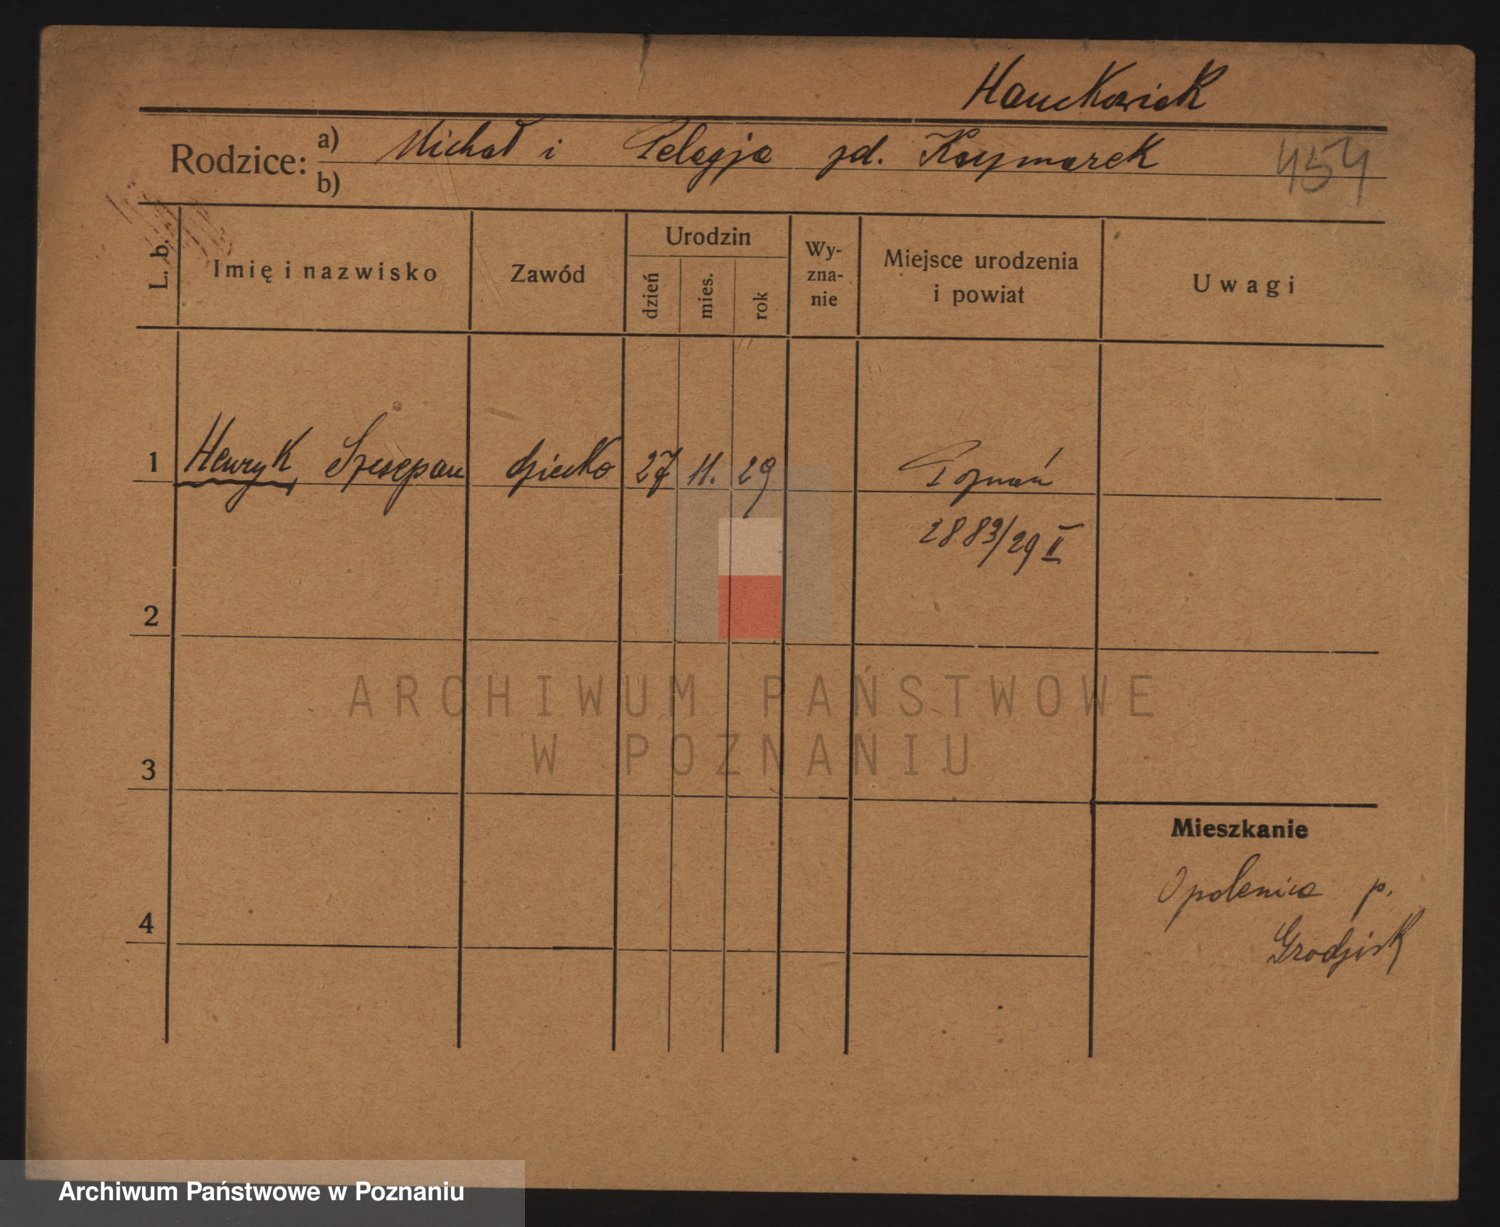 Hauckowiak
Rodzice: a) Michał i Pelagja zd. Kaczmarek 454
b)
L. b. Imię i nazwisko Zawód Urodzin dzień mies. rok Wy-zna-nie Miejsce urodzenia i powiat Uwagi
1 Henryk Szczepan dziecko 27 11. 29 Poznań
2883/29 II
2
ARCHIWUM PAŃSTWOWE
W POZNANIU
3
Mieszkanie
Opalenica p.
4
Grodzisk
Archiwum Państwowe w Poznaniu